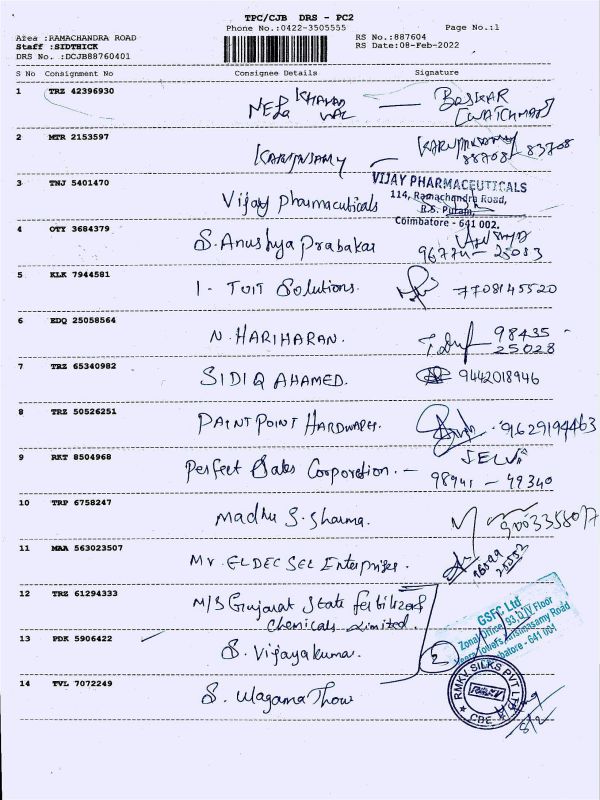 TPC/CJB DRS - PC2
Phone No.:0422-3505555
Page No.:1
Area :RAMACHANDRA ROAD
RS No.:887604
Staff :SIDTHICK
RS Date:08-Feb-2022
DRS No. :DCJB88760401
S No Consignment No Consignee Details Signature
1 TRZ 42396930
BOSKAR
(WATCHMAN)
2 MTR 2153597
KARUPUSAMY
88708 83708
3 TNJ 5401470 Vijay Pharmacuticals
VIJAY PHARMACEUTICALS
114, Ramachandra Road,
R.S. Puram,
Coimbatore - 641 002.
4 OTY 3684379 S. Anushya Prabakar
96774 - 25053
5 KLK 7944581 I - TUIT Solutions. 7708145520
6 EDQ 25058564 N. HARIHARAN. 98435 -
25028
7 TRZ 65340982 SIDIQ AHAMED. 9442018946
8 TRZ 50526251 PAINT POINT HARDWARE. 9629194463
9 RKT 8504968 Perfect Sales Corporation. - SELVA
98941 - 49340
10 TRP 6758247 Madhu S. Sharma. 9003358017
11 MAA 563023507 Mr. ELDEC SEL Enterprises.
12 TRZ 61294333 M/S Gujarat State fertilizer &
Chemicals Limited.
GSFC Ltd
Zonal Office, 93, D, IV Floor
Krishnasamy Road
Coimbatore - 641 001
13 PDK 5906422 S. Vijayakuma.
2
14 TVL 7072249 S. Ulagama Thow
RMKV SILKS PVT LTD
RMKV
CBE
8/2